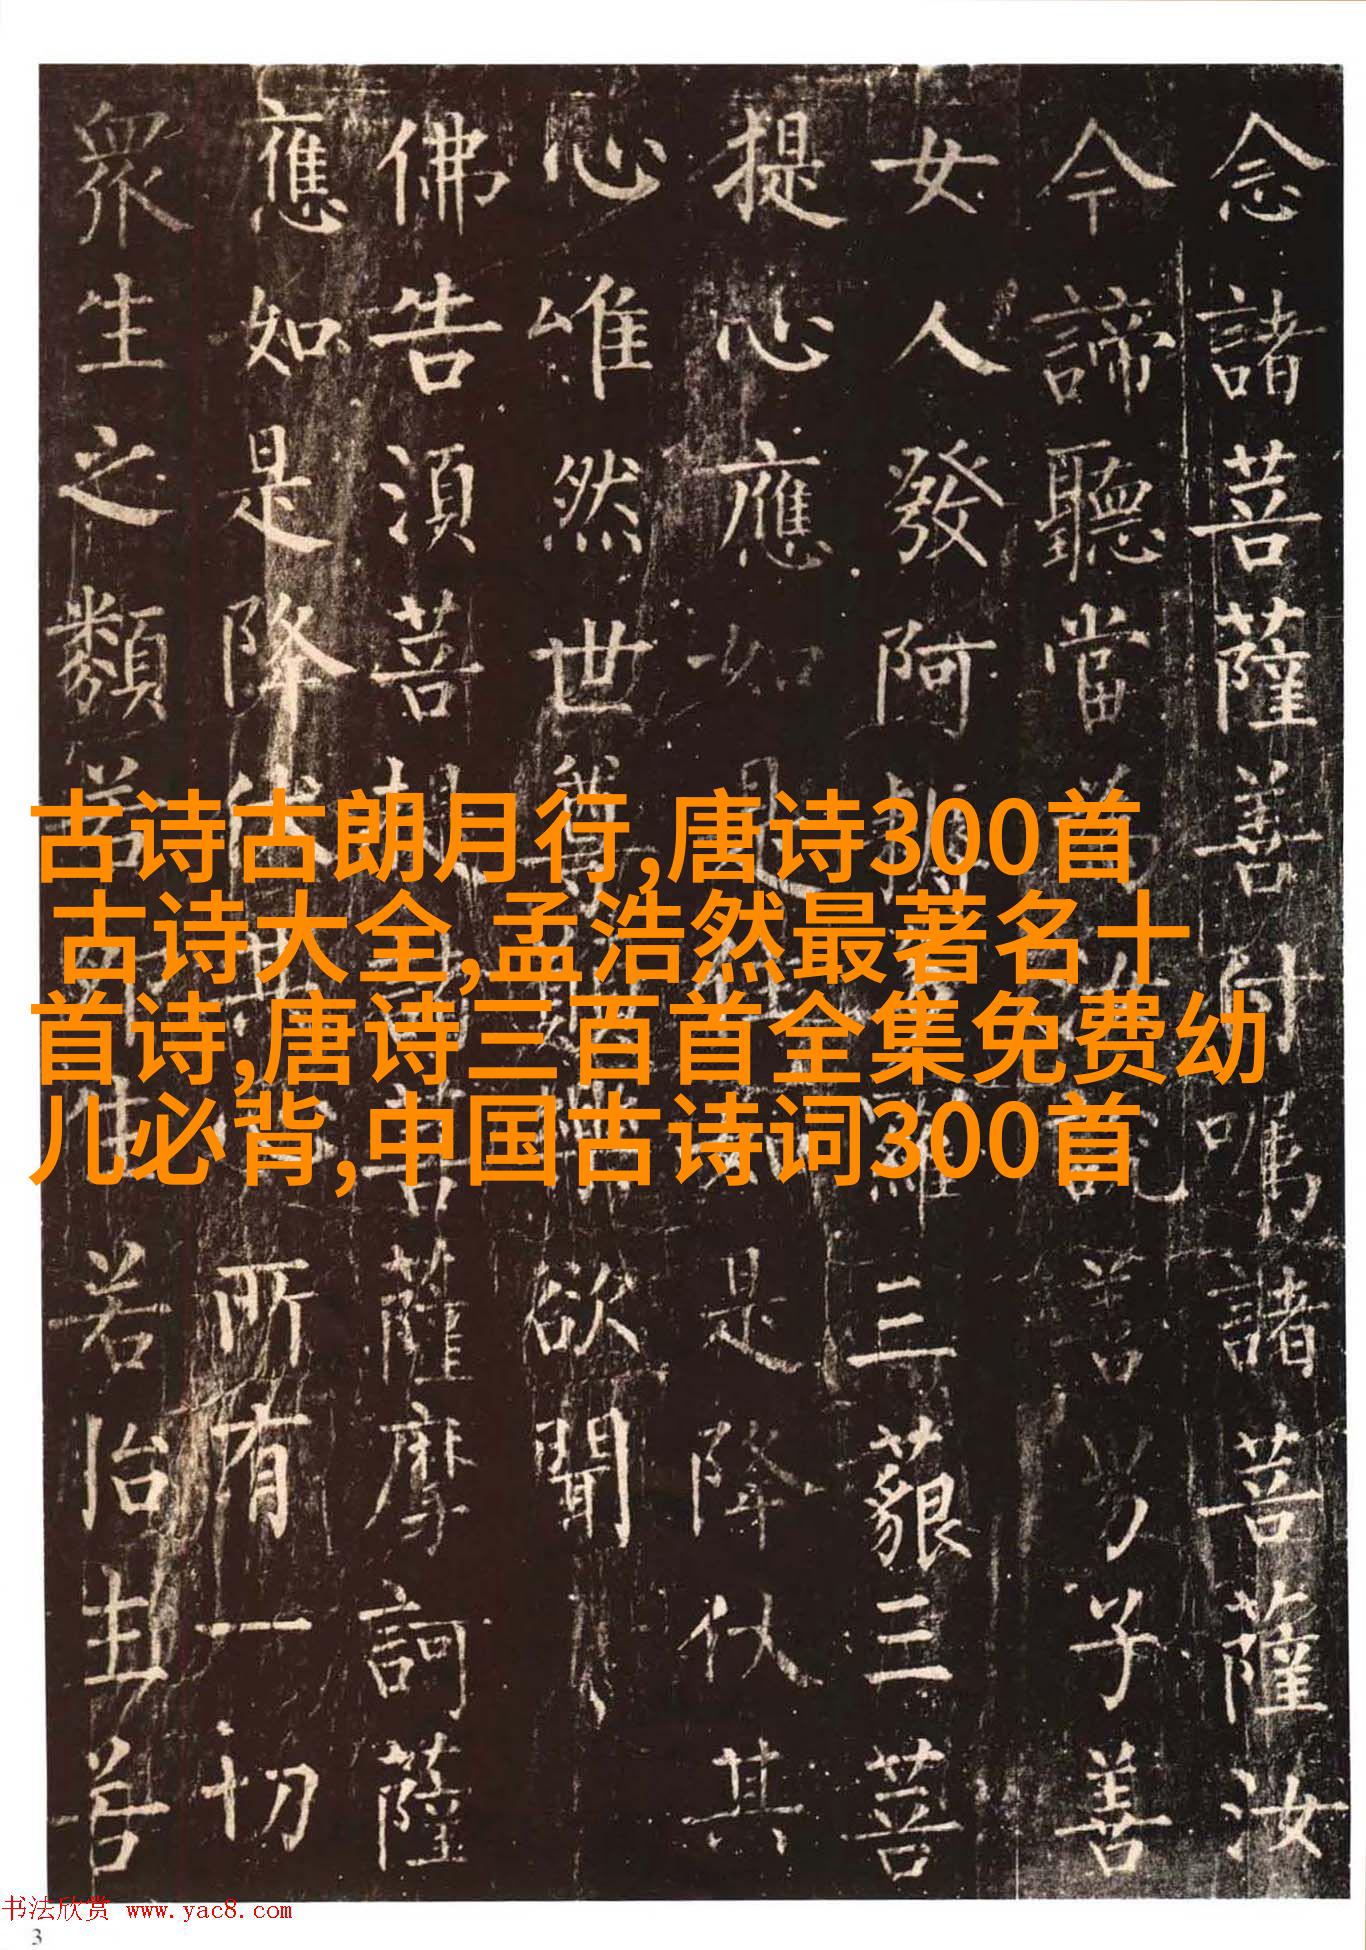 念諸菩薩善付囑諸菩薩汝
今諦聽當為汝說善男子善
女人發阿耨羅三藐三菩
提心應如是住是降伏其
心唯然世尊願樂欲聞
佛告須菩提菩薩摩訶薩
應如是降伏其所有一切
衆生之類若卵生若胎生若
古诗古朗月行,唐诗300首
古诗大全,孟浩然最著名十
首诗,唐诗三百首全集免费幼
儿必背,中国古诗词300首
书法欣赏 www.yac8.com
3